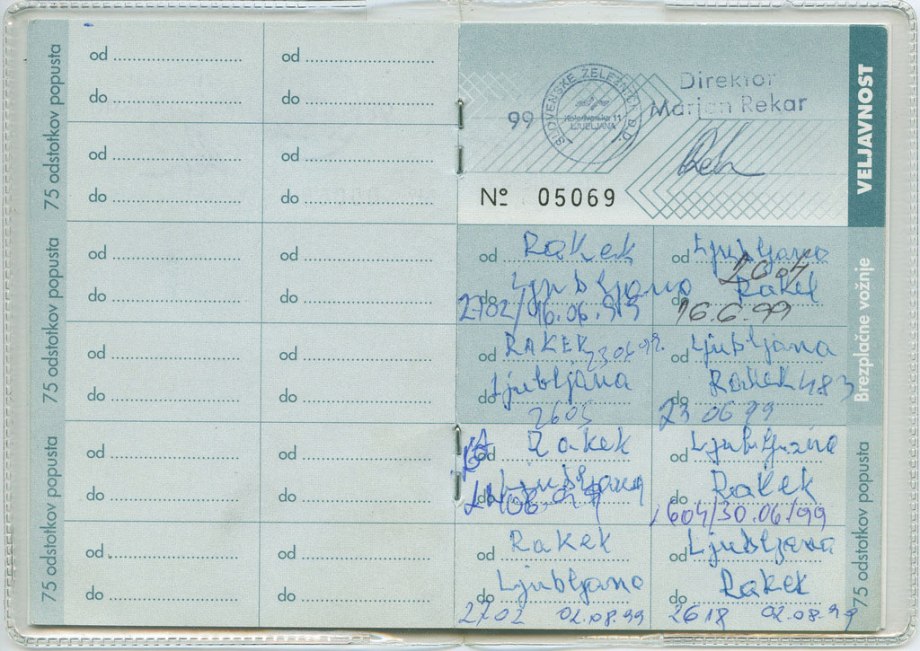 75 odstotkov popusta
75 odstotkov popusta
75 odstotkov popusta
od
do
od
do
od
do
od
do
od
do
od
do
od
do
od
do
od
do
od
do
od
do
od
do
99
SLOVENSKE ŽELEZNICE D.D.
LJUBLJANA
Direktor
Marjan Rekar
Nº 05069
VELJAVNOST
Brezplačne vožnje
75 odstotkov popusta
od Rakek
do Ljubljana
od Ljubljana
2004
do Rakek
16.6.99
od RAKEK 23.06.99.
do Ljubljana
2603
od Ljubljana
do Rakek 483
23 06 99
od Rakek
do Ljubljana
od Ljubljana
do Rakek
1604/30.06/99
od Rakek
do Ljubljana
2702 02.08.99
od Ljubljana
do Rakek
2618 02.08.99